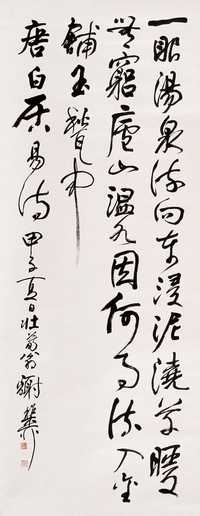 一眼湯泉流向東浸泥澆草暖
無窮廬山温水因何事流入金
鋪玉甃中
唐白居易詩 甲子夏日壯暮翁謝稚柳